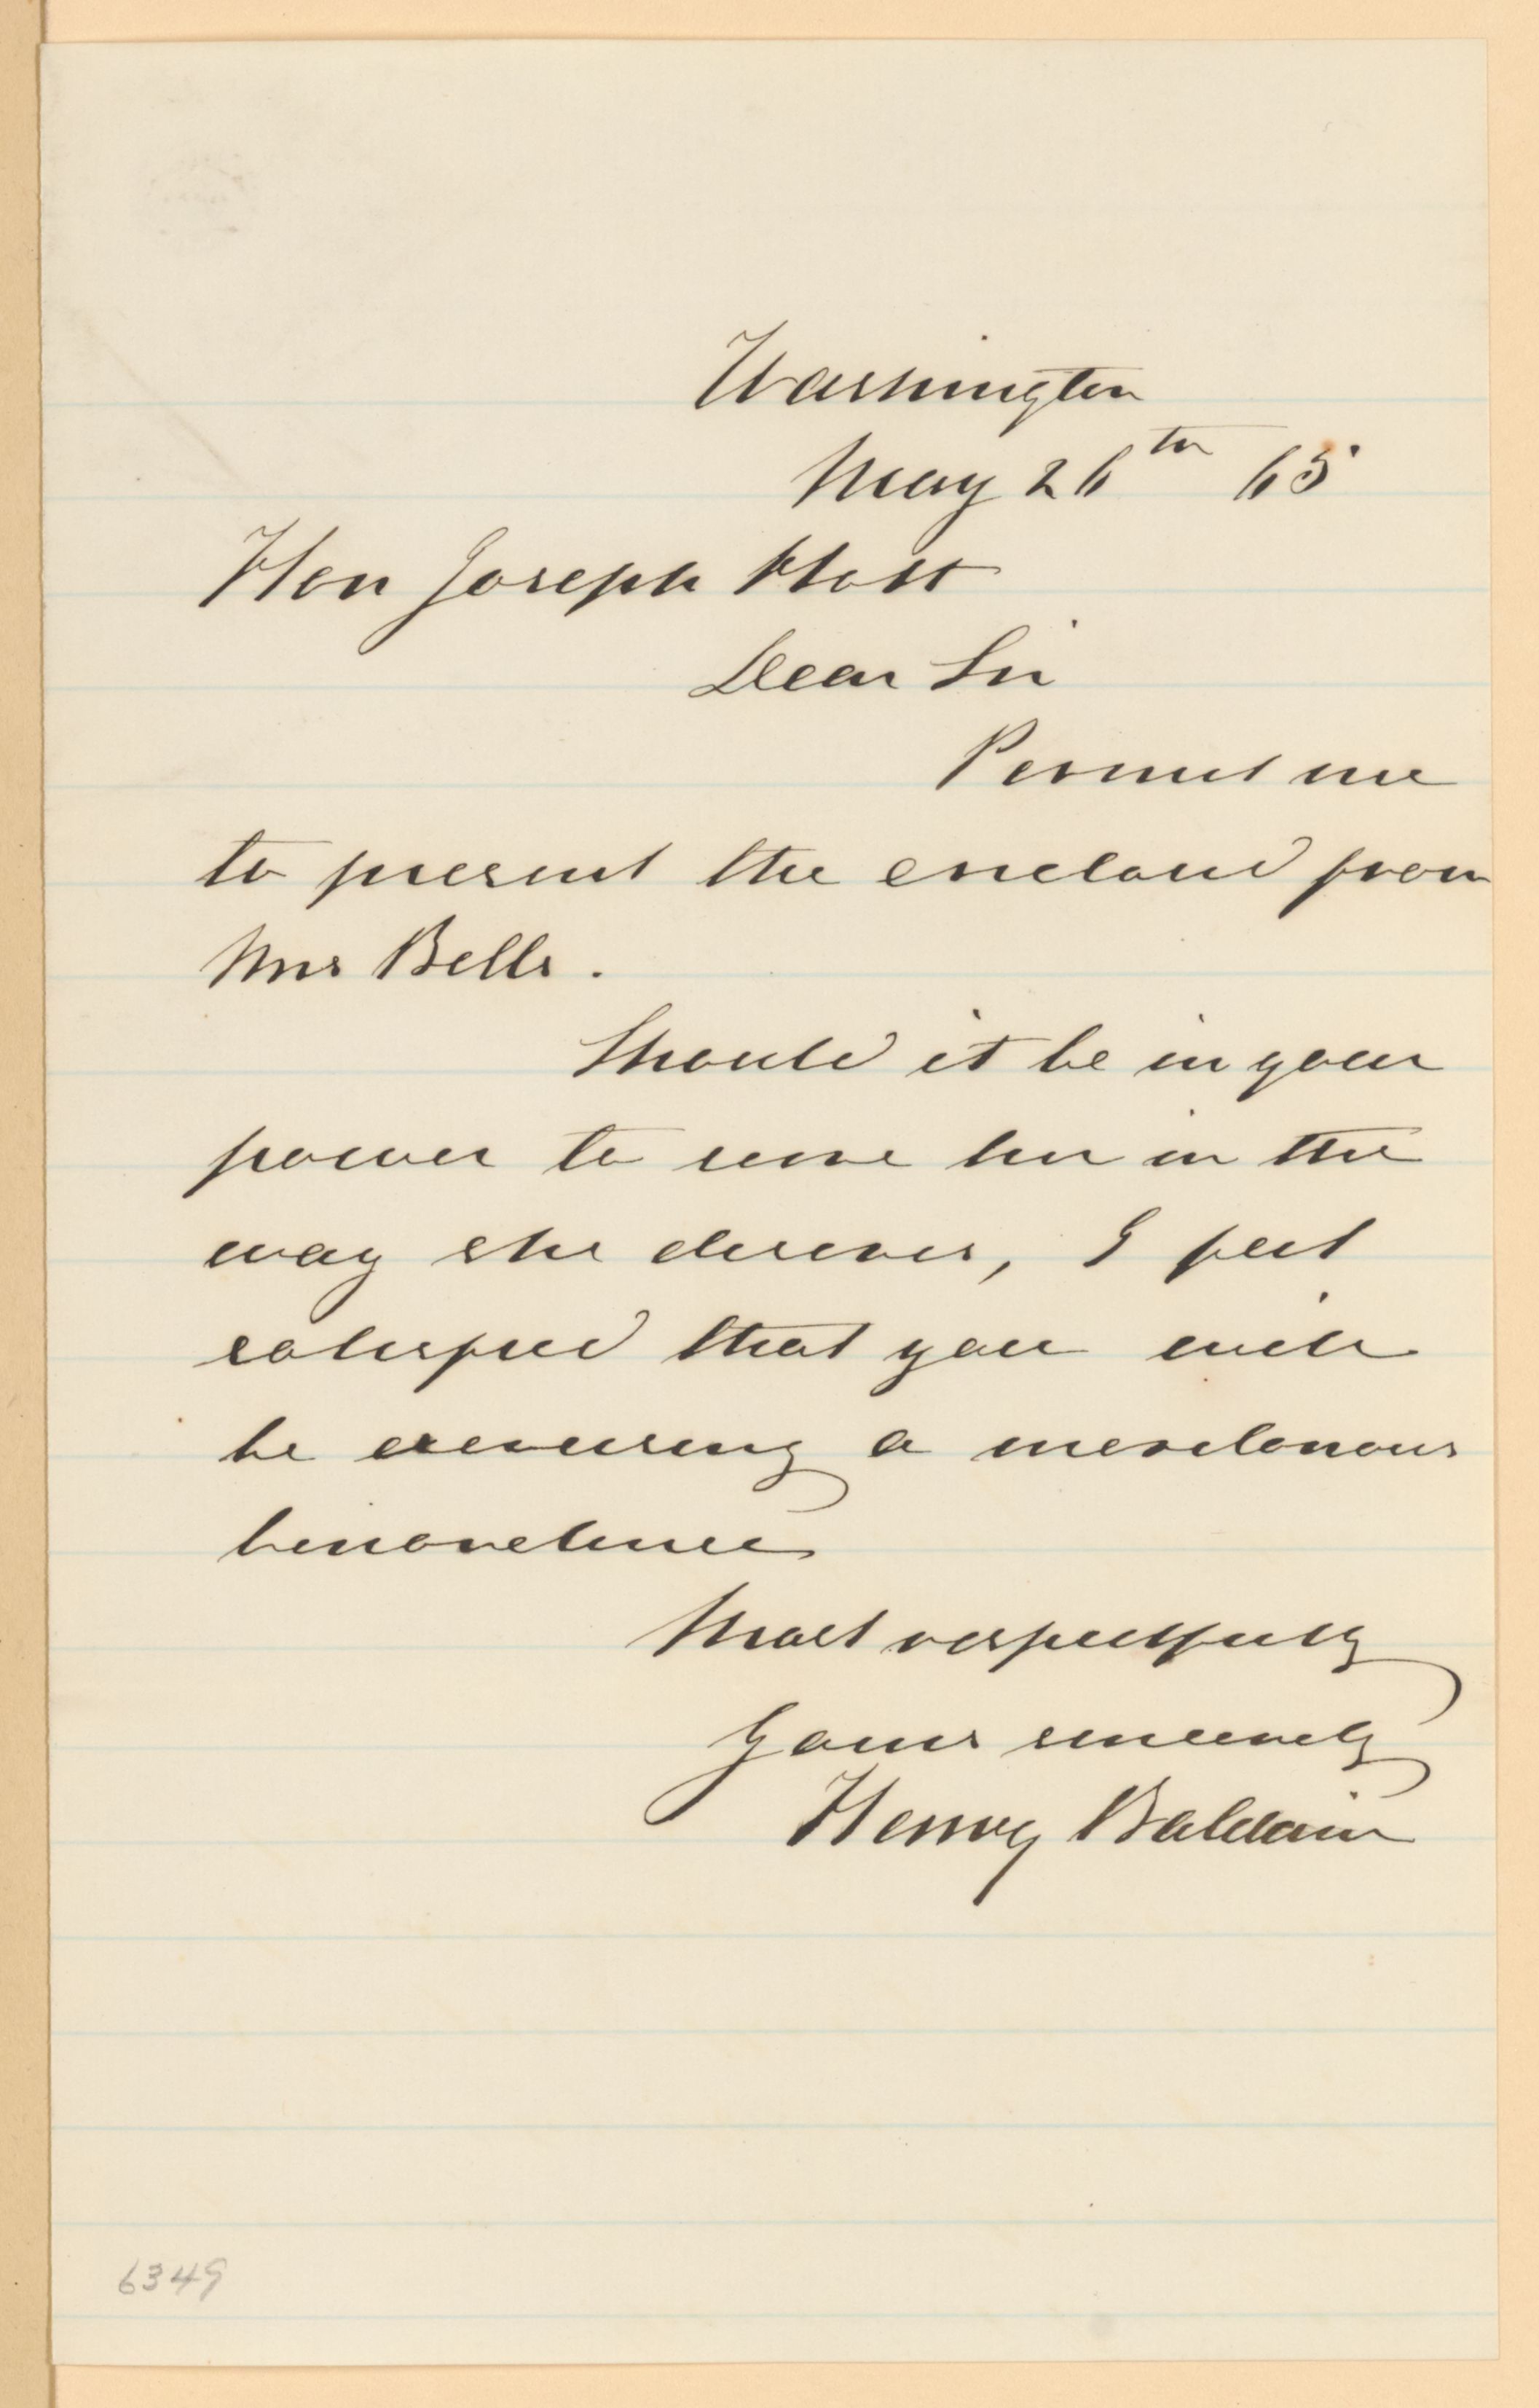 Washington
May 26th 65
Hon Joseph Holt
Dear Sir
Permit me
to present the enclosed from
Mrs Bells.
Should it be in your
power to serve her in the
way she desires, I feel
satisfied that you will
be exercising a meritorious
benevolence
Most respectfully
Yours sincerely
Henry Baldwin
6349